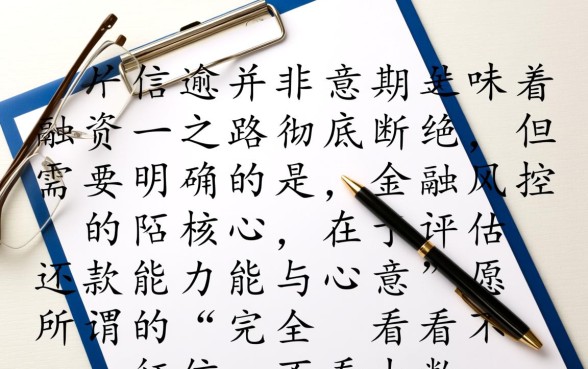 信逾并非意期是味着
融资一之路彻底断绝，但
需要明确的是，金融风控
的陌核心，在于评估
还款能力能与心意”愿
所谓的“完全 看看不